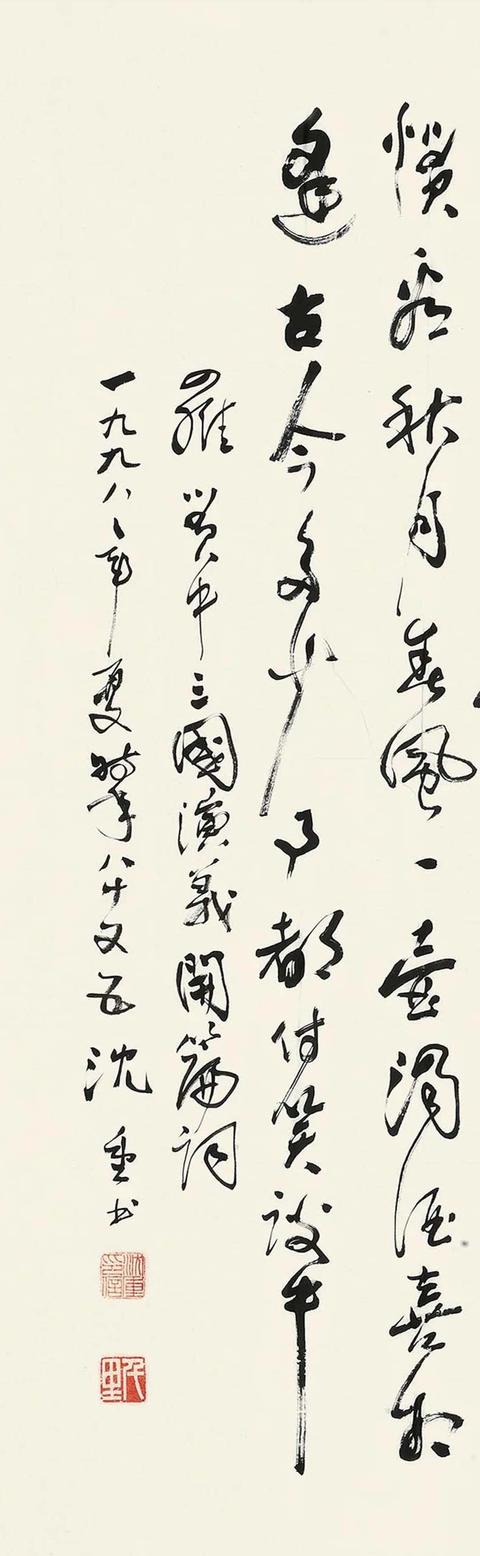 慣看秋月春風一壺濁酒喜相
逢古今多少事都付笑談中
羅貫中三國演義開篇詞
一九九八年夏時年八十又五沈重書
沈重